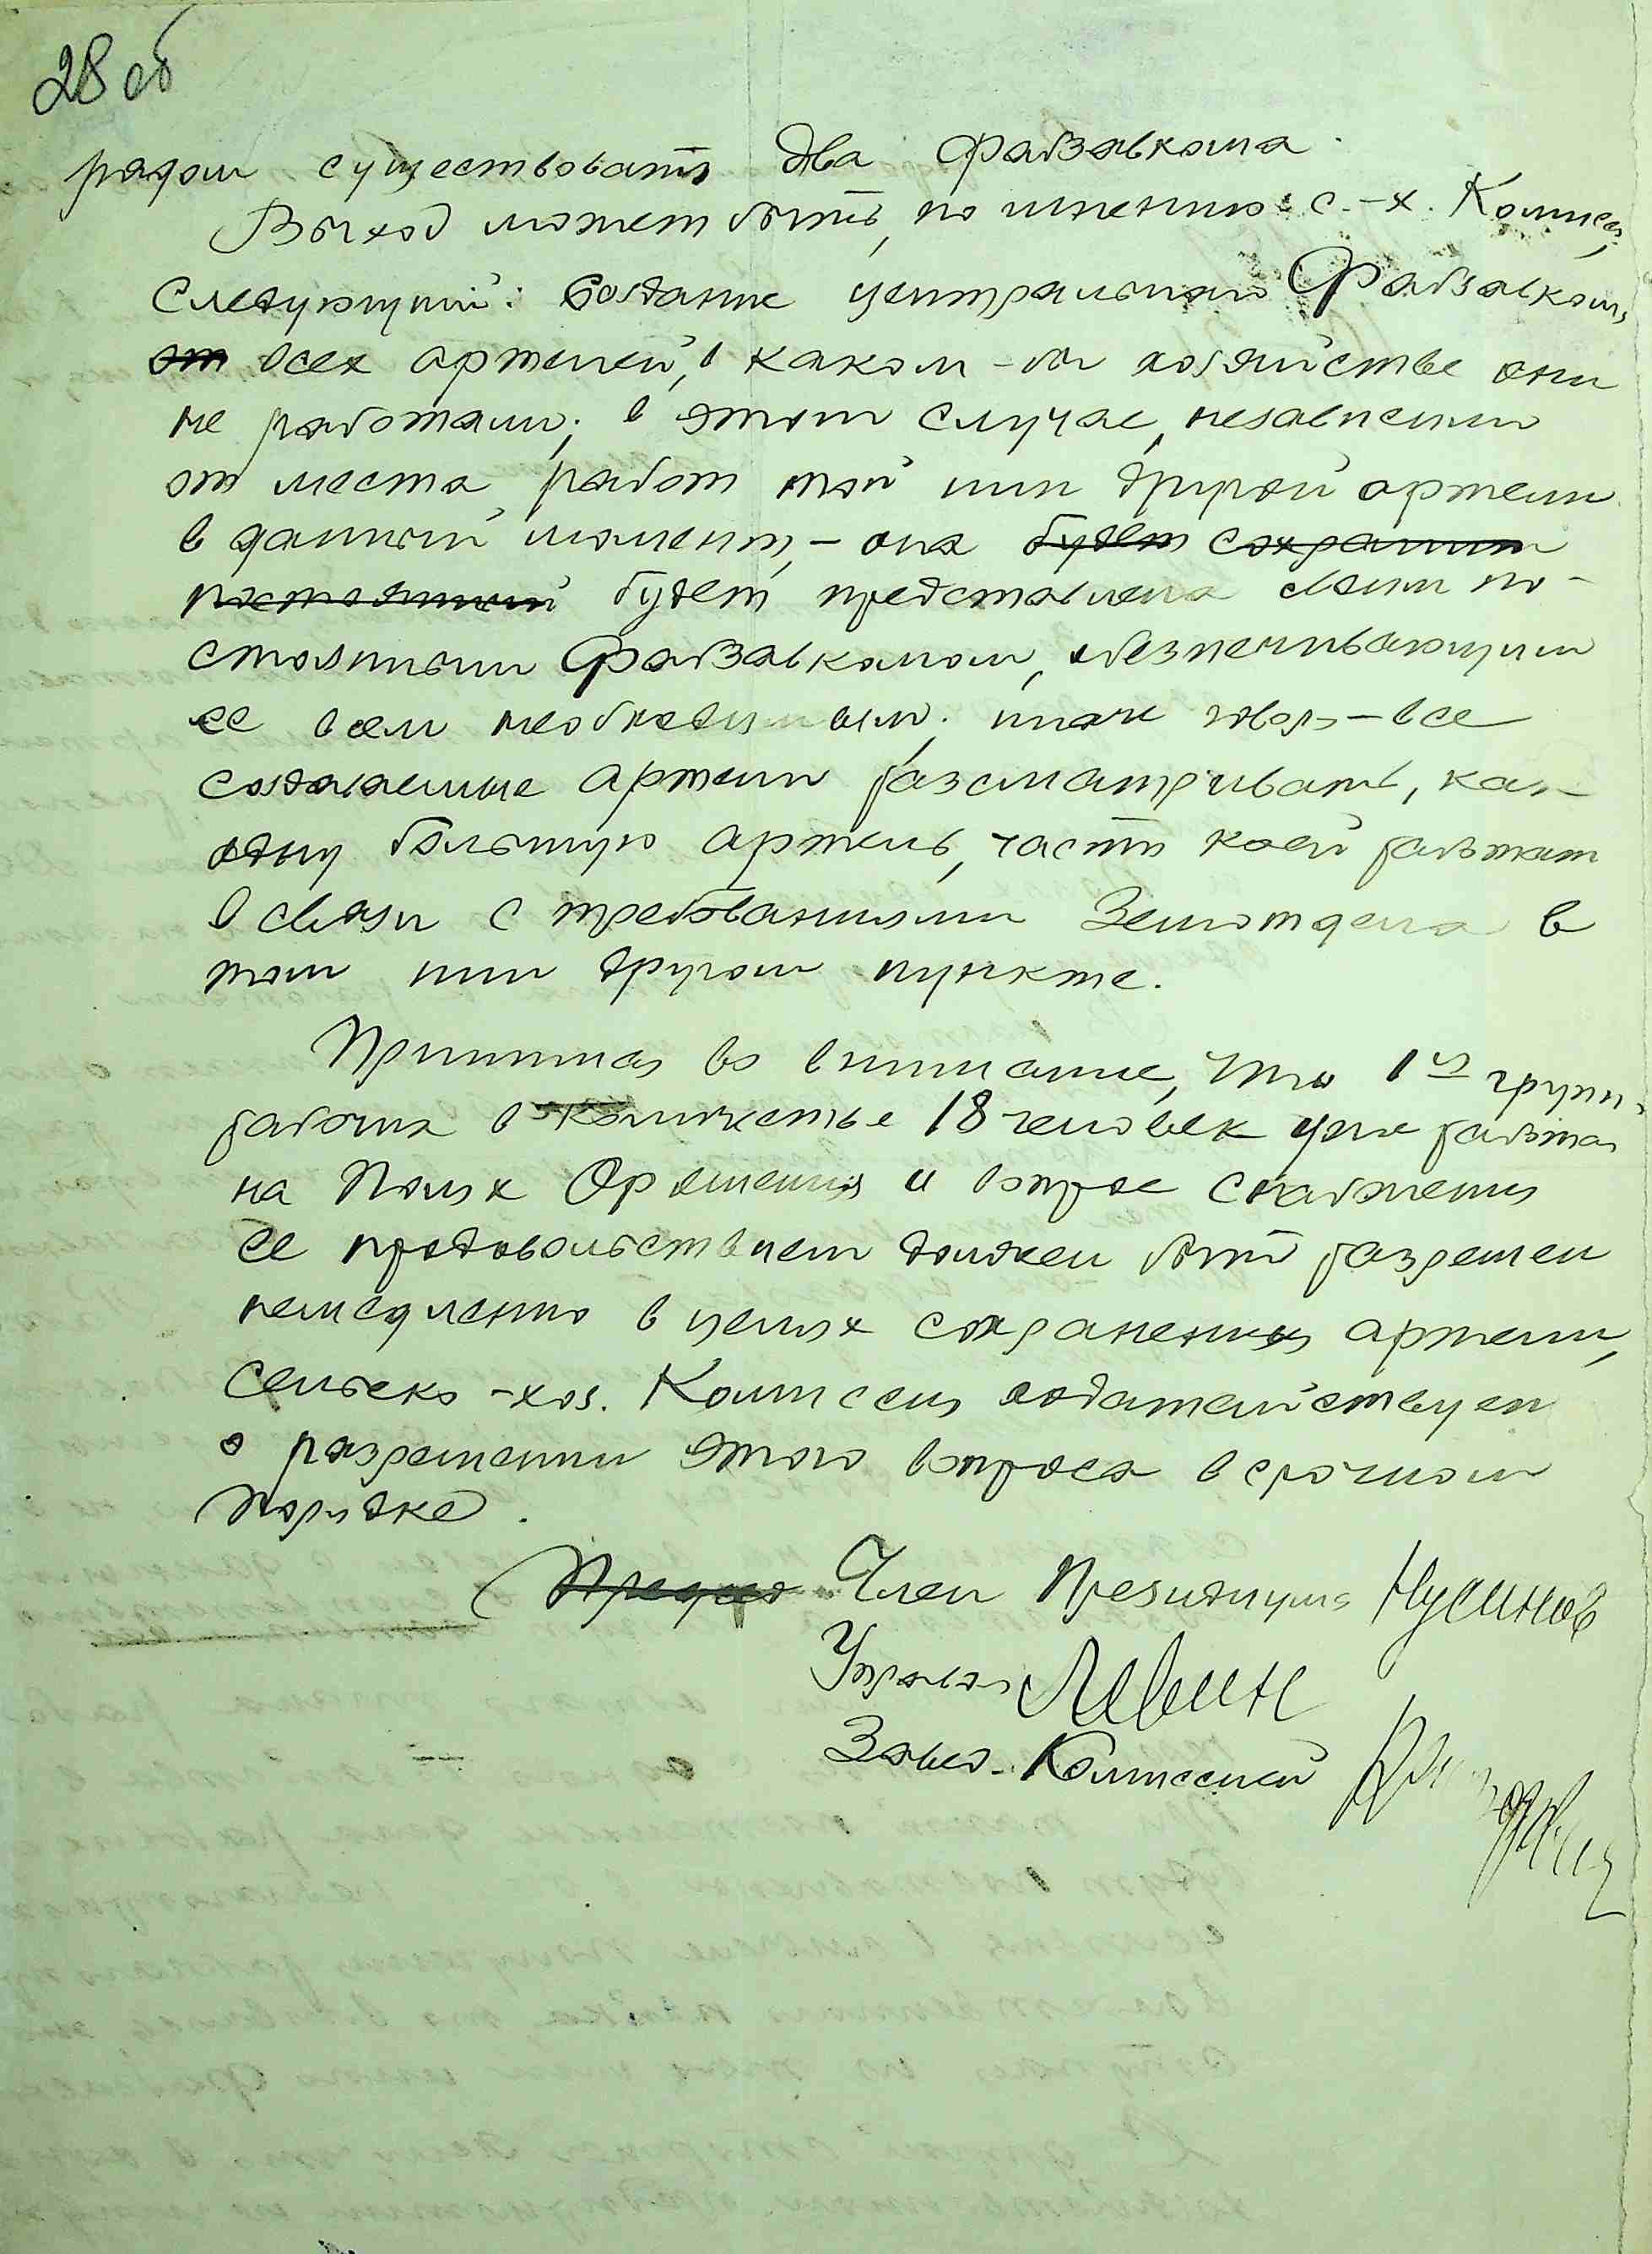 28 об
рядом существовать два фабзавкома.
Выход может быть, по мнению с.-х. Комисс.,
следующий: создание центрального Фабзавкома
от всех артелей, в каком-бы хозяйстве они
не работали; в этом случае, независимо
от места работ той или другой артели
в данный момент, – она будет сохранит
постоянный будет представлена своим по-
стоянным Фабзавкомом, обезпечивающим
ее всем необходимым; иначе говоря – все
создаваемые артели разсматривать, как
одну большую артель, часть коей работает
в связи с требованиями Земотдела в
том или другом пункте.
Принимая во внимание, что 1-я группа
рабочих в количестве 18 человек уже работает
на Полях Орошения и вопрос снабжения
ее продовольствием должен быть разрешен
немедленно в целях сохранения артели,
сельско-хоз. Комиссия ходатайствует
о разрешении этого вопроса в срочном
порядке.
Председ Член Президиума Нусинов
Управдел Левин
Завед. Комиссией